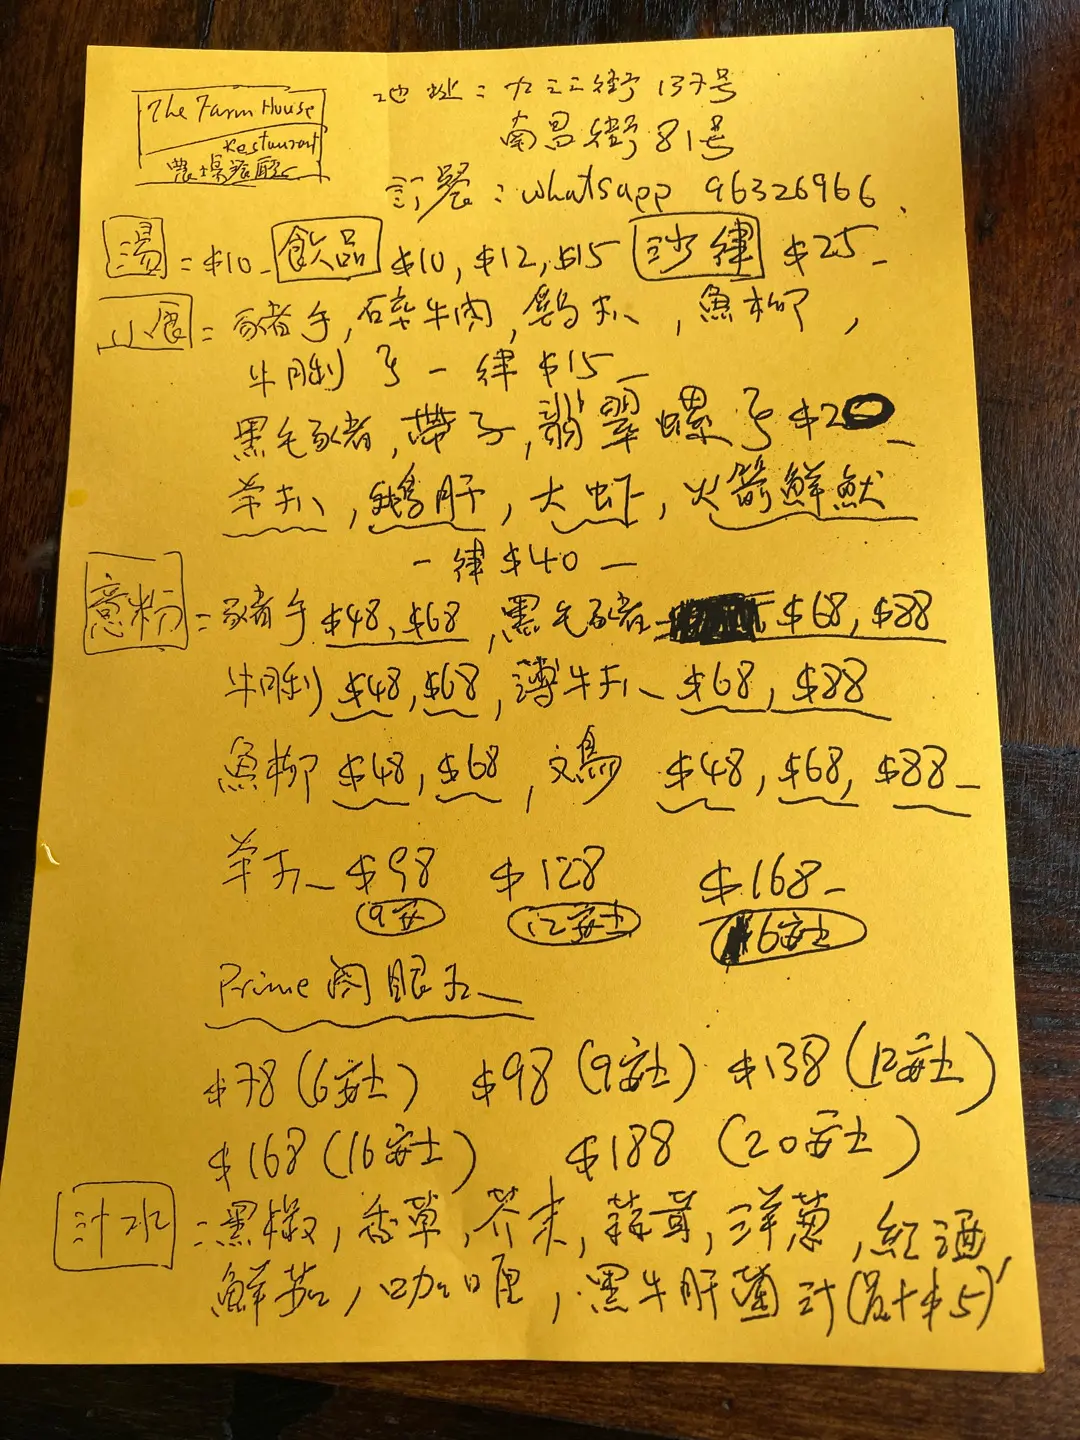 The Farm House
Restaurant
農場餐廳
地址：九江街 137号
南昌街 81号
訂餐：whatsapp 96326966.
湯 = $10- 飲品 $10, $12, $15 沙律 $25-
小食 = 豬手, 碎牛肉, 雞扒, 魚柳,
牛脷 多 一律 $15-
黑毛豬, 帶子, 翡翠螺 多 $20-
羊扒, 鵝肝, 大虾, 火箭鮮魷
一律 $40-
意粉 = 豬手 $48, $68, 黑毛豬 $68, $88
牛脷 $48, $68, 薄牛扒 $68, $88
魚柳 $48, $68, 文鳥 $48, $68, $88-
羊扒 $98 $128 $168-
9安 12安士 16安士
Prime 肉眼扒
$78 (6安士) $98 (9安士) $138 (12安士)
$168 (16安士) $188 (20安士)
汁水 = 黑椒, 香草, 芥末, 蒜茸, 洋葱, 紅酒,
鮮茄, 咖喱, 黑牛肝菌汁(另汁$5)